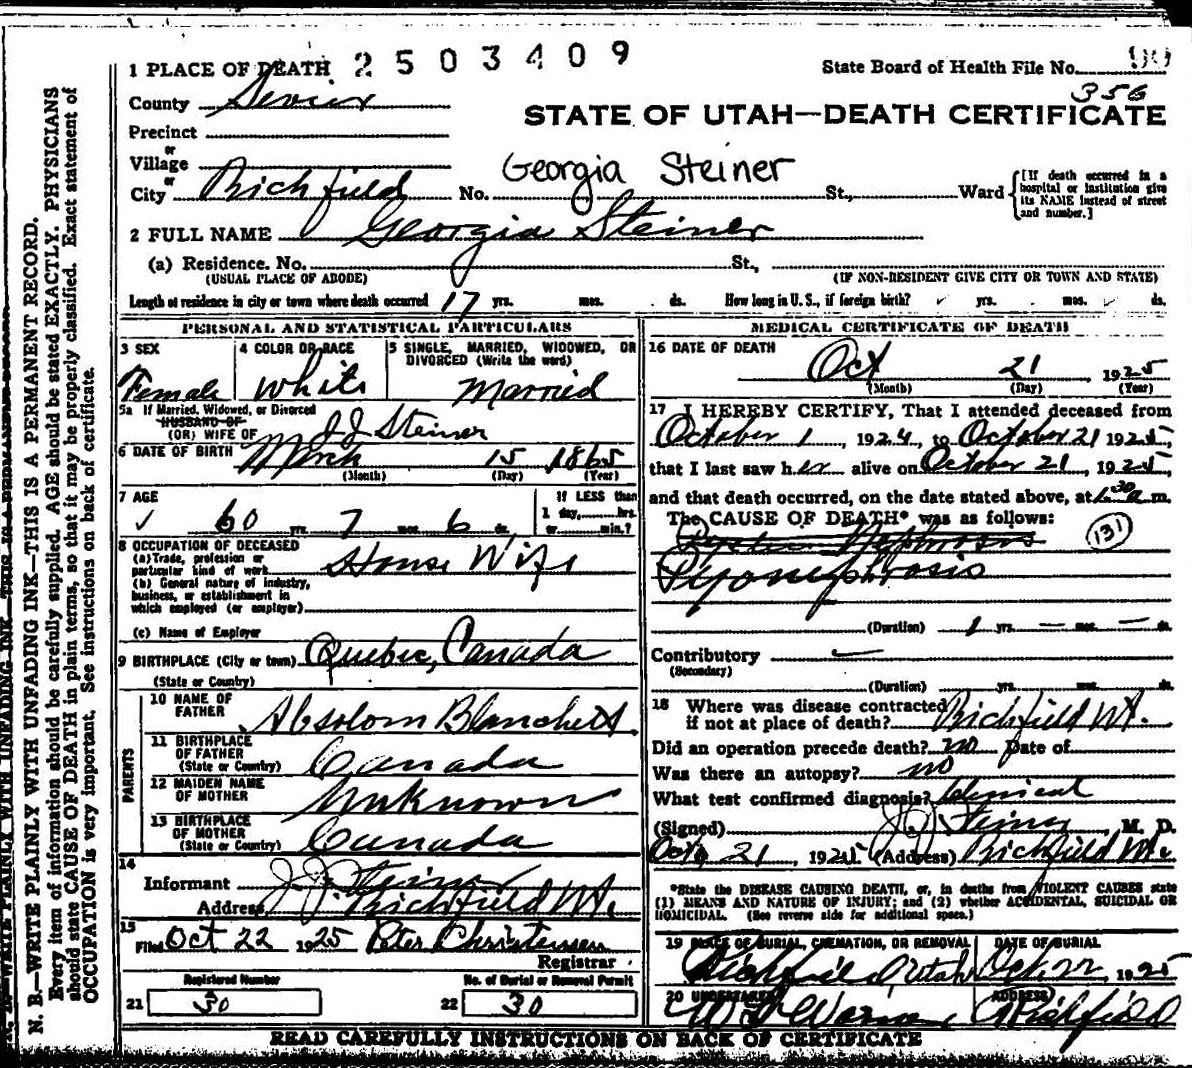 1 PLACE OF DEATH 2503409
State Board of Health File No. 90
356
County Sevier
STATE OF UTAH—DEATH CERTIFICATE
Precinct
or
Village
or
City Richfield No. Georgia Steiner St., Ward
[If death occurred in a hospital or institution give its NAME instead of street and number.]
2 FULL NAME Georgia Steiner
(a) Residence. No. St.,
(USUAL PLACE OF ABODE) (IF NON-RESIDENT GIVE CITY OR TOWN AND STATE)
Length of residence in city or town where death occurred 17 yrs. mos. ds. How long in U. S., if foreign birth? yrs. mos. ds.
PERSONAL AND STATISTICAL PARTICULARS
3 SEX
Female
4 COLOR OR RACE
White
5 SINGLE, MARRIED, WIDOWED, OR
DIVORCED (Write the word)
Married
5a If Married, Widowed, or Divorced
HUSBAND OF
(OR) WIFE OF J J Steiner
6 DATE OF BIRTH March 15 1865
(Month) (Day) (Year)
7 AGE
60 yrs. 7 mos. 6 ds.
If LESS than
1 day, hrs.
or min.?
8 OCCUPATION OF DECEASED
(a) Trade, profession or
particular kind of work House Wife
(b) General nature of industry,
business, or establishment in
which employed (or employer)
(c) Name of Employer
9 BIRTHPLACE (City or town) Quebec, Canada
(State or Country)
PARENTS
10 NAME OF
FATHER Absolom Blanchett
11 BIRTHPLACE
OF FATHER
(State or Country) Canada
12 MAIDEN NAME
OF MOTHER Unknown
13 BIRTHPLACE
OF MOTHER
(State or Country) Canada
14
Informant J J Steiner
Address Richfield Ut.
15
Filed Oct 22 1925 Peter Christensen
Registrar
Registered Number
21 30
No. of Burial or Removal Permit
22 30
MEDICAL CERTIFICATE OF DEATH
16 DATE OF DEATH
Oct 21 1925
(Month) (Day) (Year)
17 I HEREBY CERTIFY, That I attended deceased from
October 1, 1924, to October 21 1925,
that I last saw her alive on October 21, 1925
and that death occurred, on the date stated above, at 6 30 a m.
The CAUSE OF DEATH* was as follows:
Nephrosis (131)
Pyonephrosis
(Duration) 1 yrs. — mos. — ds.
Contributory
(Secondary)
(Duration) yrs. mos. ds.
18 Where was disease contracted
if not at place of death? Richfield Ut.
Did an operation precede death? no Date of
Was there an autopsy? no
What test confirmed diagnosis? Clinical
(Signed) J J Steiner, M. D.
Oct 21, 1925 (Address) Richfield Ut.
*State the DISEASE CAUSING DEATH, or, in deaths from VIOLENT CAUSES state
(1) MEANS AND NATURE OF INJURY; and (2) whether ACCIDENTAL, SUICIDAL OR
HOMICIDAL. (See reverse side for additional space.)
19 PLACE OF BURIAL, CREMATION, OR REMOVAL
Richfield, Utah
DATE OF BURIAL
Oct 22, 1925
20 UNDERTAKER
ADDRESS
Richfield
READ CAREFULLY INSTRUCTIONS ON BACK OF CERTIFICATE
N. B.—WRITE PLAINLY WITH UNFADING INK—THIS IS A PERMANENT RECORD.
Every item of information should be carefully supplied. AGE should be stated EXACTLY. PHYSICIANS
should state CAUSE OF DEATH in plain terms, so that it may be properly classified. Exact statement of
OCCUPATION is very important. See instructions on back of certificate.